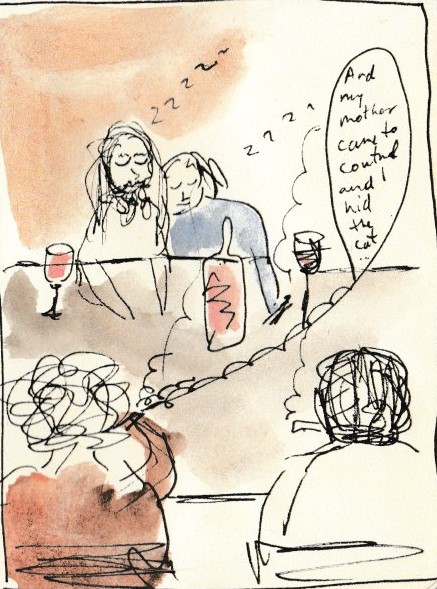 z z z z z
z z z z
And
my
mother
came to
control
and I
hid
the
cat
...